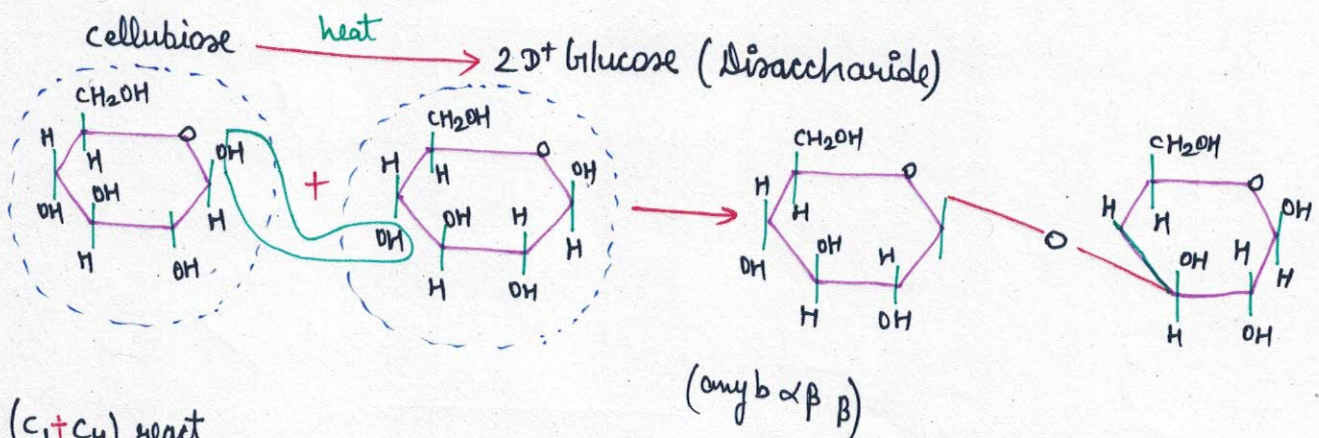 cellubiose heat 2D+ Glucose (Disaccharide)
CH2OH CH2OH CH2OH CH2OH
H O OH H O OH H O H O OH
H OH H + H OH H H H OH H O H OH H H
OH H OH H OH H OH OH H OH H OH
(any b αβ β)
(C1+C4) react